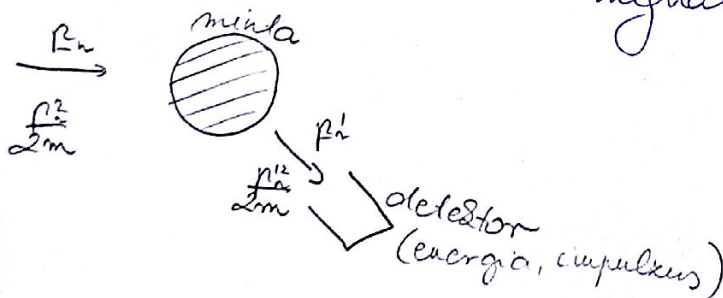 minta
p_n
p_n²/2m
p_n'
p_n'²/2m
detektor
(energia, impulzus)